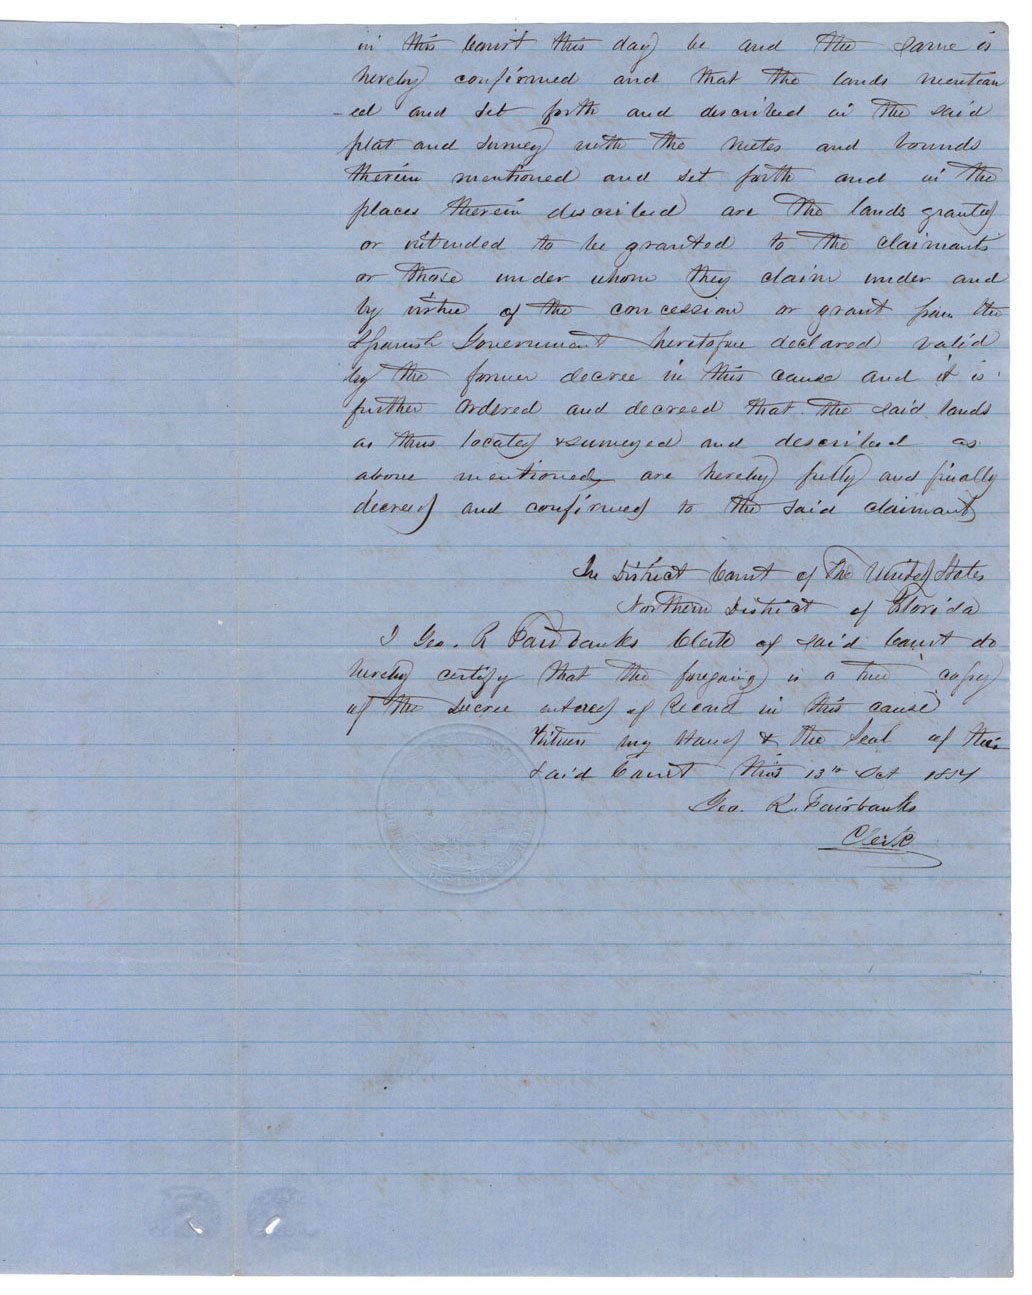 in this Court this day be and the same is
hereby confirmed and that the lands mention
-ed and set forth and described in the said
plat and survey with the metes and bounds
therein mentioned and set forth and in the
places therein described are the lands granted
or intended to be granted to the claimants
or those under whom they claim under and
by virtue of the concession or grant from the
Spanish Government heretofore declared valid
by the former decree in this cause and it is
further Ordered and decreed that the said lands
as thus located & surveyed and described as
above mentioned are hereby fully and finally
decreed and confirmed to the said claimants
In District Court of the United States
Northern District of Florida
I Geo. R Fairbanks Clerk of said Court do
hereby certify that the foregoing is a true copy
of the Decree entered of Record in this cause
Witness my Hand & the Seal of the
said Court this 13th Oct 1854
Geo. R. Fairbanks
Clerk